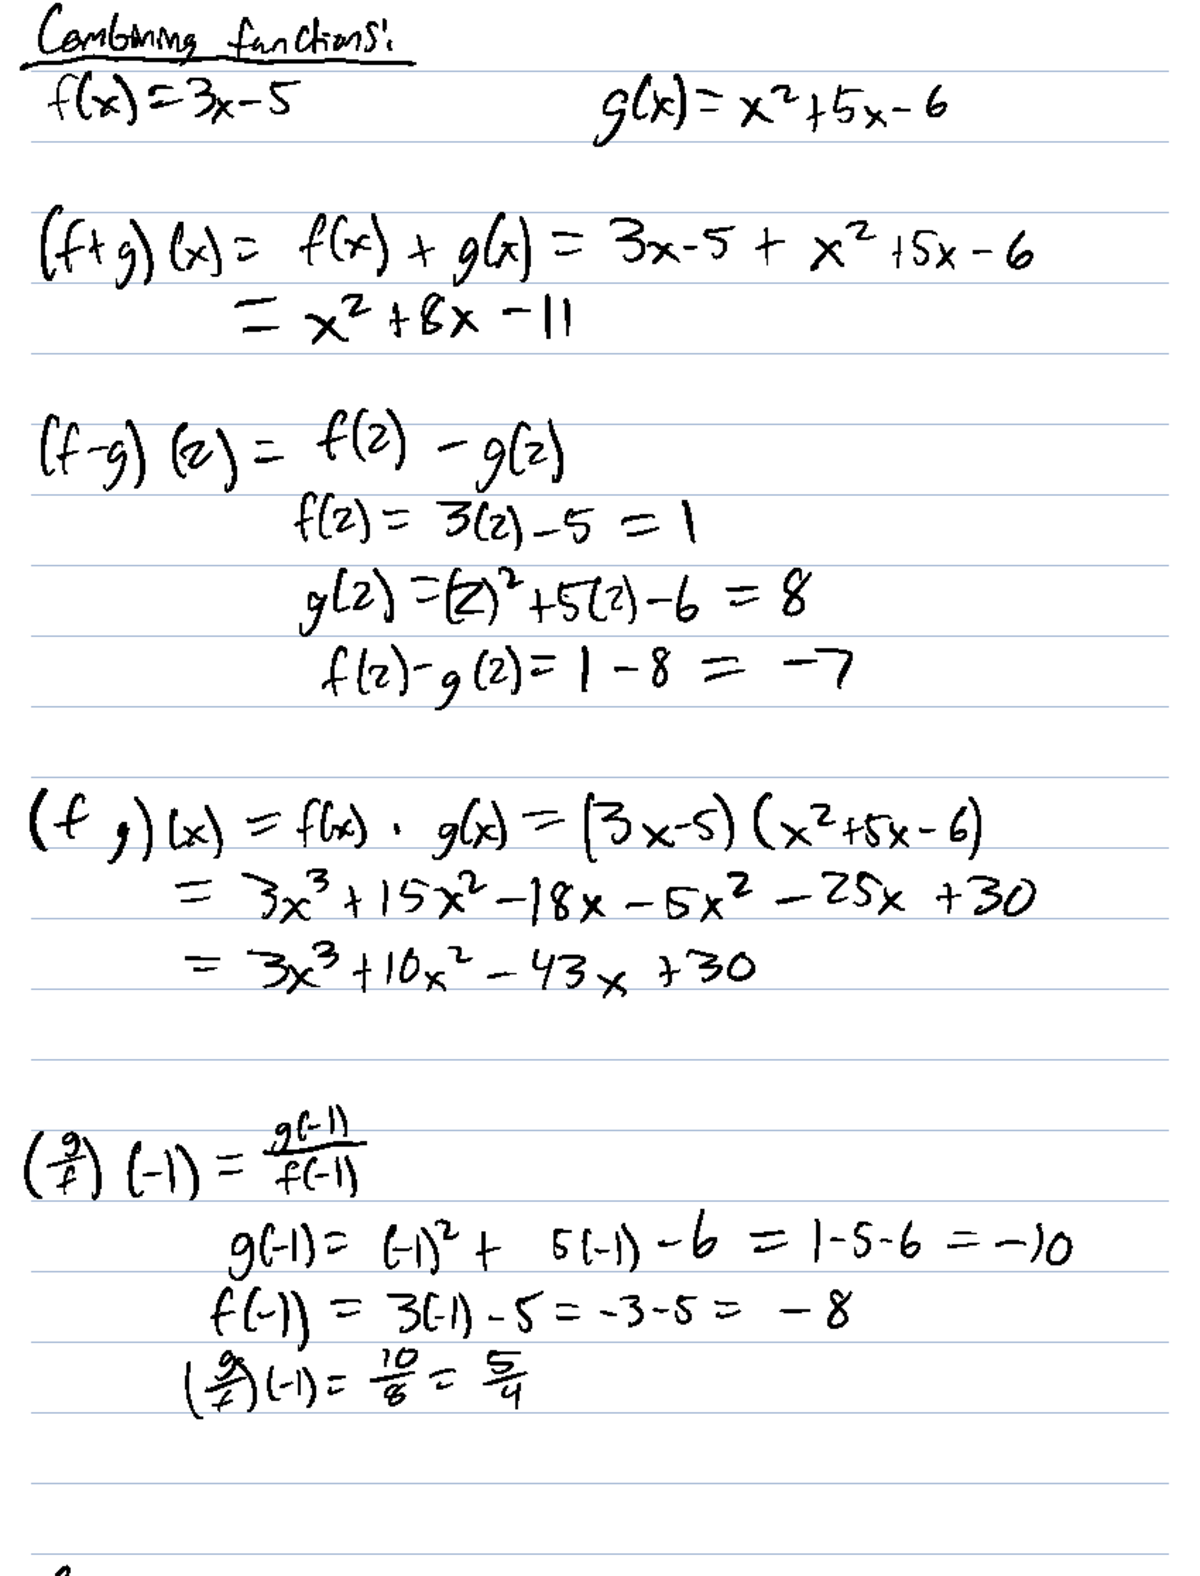 Combining functions:
f(x) = 3x - 5 g(x) = x² + 5x - 6
(f + g)(x) = f(x) + g(x) = 3x - 5 + x² + 5x - 6
= x² + 8x - 11
(f - g)(2) = f(2) - g(2)
f(2) = 3(2) - 5 = 1
g(2) = (2)² + 5(2) - 6 = 8
f(2) - g(2) = 1 - 8 = -7
(f g)(x) = f(x) · g(x) = (3x - 5)(x² + 5x - 6)
= 3x³ + 15x² - 18x - 5x² - 25x + 30
= 3x³ + 10x² - 43x + 30
(g/f)(-1) = g(-1)/f(-1)
g(-1) = (-1)² + 5(-1) - 6 = 1 - 5 - 6 = -10
f(-1) = 3(-1) - 5 = -3 - 5 = -8
(g/f)(-1) = 10/8 = 5/4